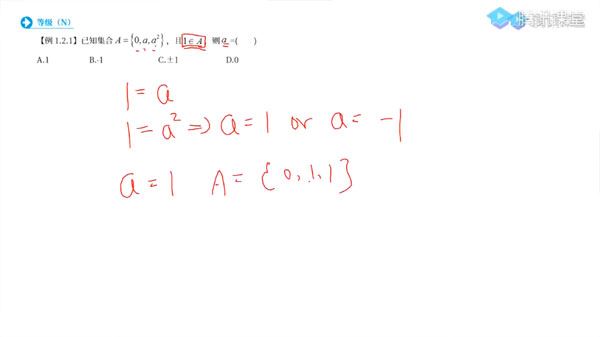 腾讯课堂
等级（N）
【例 1.2.1】已知集合 A={0,a,a²}，且 1∈A，则 a=( )
A.1 B.-1 C.±1 D.0
1 = a
1 = a² ⇒ a = 1 or a = -1
a = 1 A = {0,1,1}